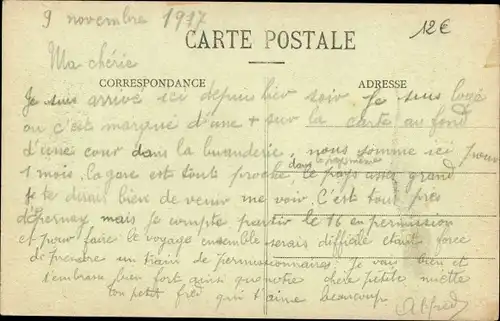 9 novembre 1917
12€
CARTE POSTALE
Ma chérie
CORRESPONDANCE
ADRESSE
Je suis arrivé ici depuis hier soir je suis logé
ou c'est marqué d'une + sur la carte au fond
d'une cour dans la buanderie, nous somme ici pour
dans le pays même
1 mois. La gare est tout proche, le pays assez grand
je te dirais bien de venir me voir. C'est tout près
d'épernay mais je compte partir le 16 en permission
et pour faire le voyage ensemble serais difficile étant forcé
de prendre un train de permissionnaires. Je vais bien et
t'embrasse bien fort ainsi que notre chère petite miette
ton petit fred qui t'aime beaucoup.
Alfred